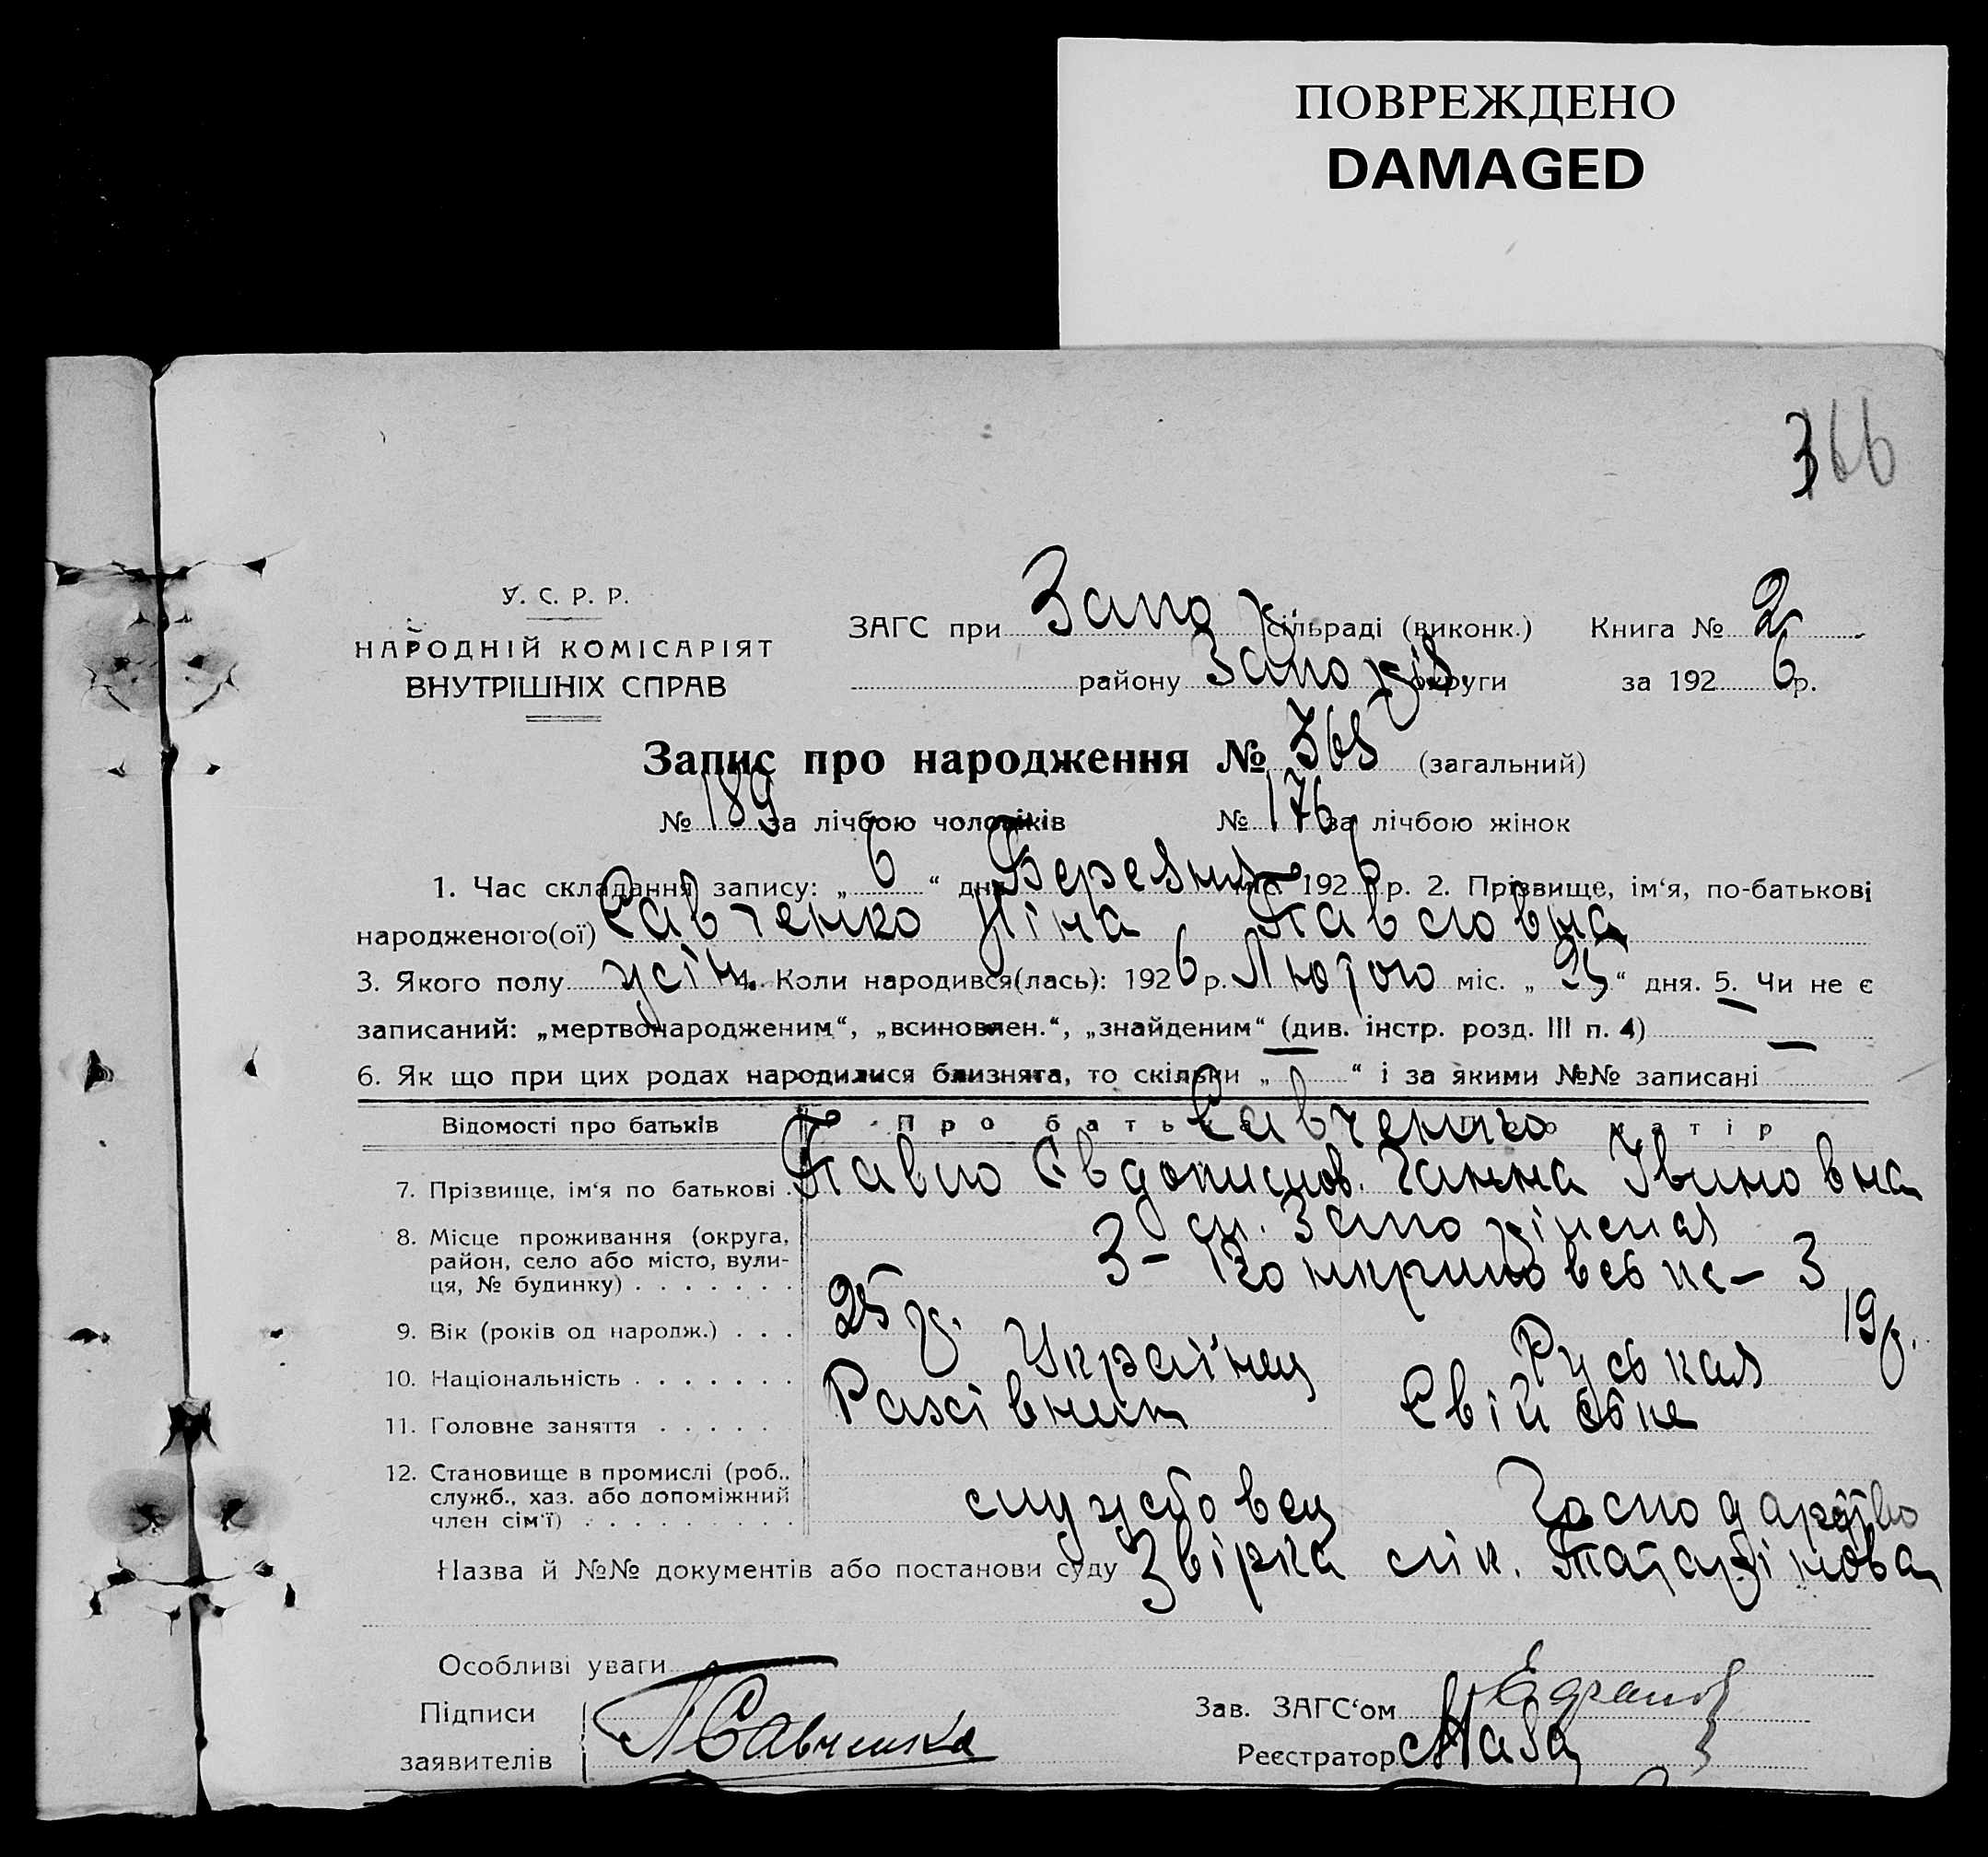 ПОВРЕЖДЕНО
DAMAGED
366
У. С. Р. Р.
НАРОДНІЙ КОМІСАРІЯТ
ВНУТРІШНІХ СПРАВ
ЗАГС при Запо сільраді (виконк.) Книга № 2
району округи за 192 6 р.
Запис про народження № 365 (загальний)
№ 189 за лічбою чоловіків № 176 за лічбою жінок
1. Час складання запису: „ 6 “ дня Березня 192 6 р. 2. Прізвище, ім‘я, по-батькові
народженого(ої) Савченко Ніна Павловна
3. Якого полу 4. Коли народився(лась): 192 6 р. Лютого міс. „ 25 “ дня. 5. Чи не є
записаний: „мертвонародженим“, „всиновлен.“, „знайденим“ (див. інстр. розд. III п. 4) —
6. Як що при цих родах народилися близнята, то скільки „ — “ і за якими №№ записані —
Відомості про батьків Про батька Савченко Про матір
7. Прізвище, ім‘я по батькові . Павло Ганна Івановна
8. Місце проживання (округа,
район, село або місто, вули-
ця, № будинку) . . . . . . . 3
9. Вік (років од народж.) . . . 25 р. 19 р.
10. Національність . . . . . . . Українец Руськая
11. Головне заняття . . . . .
12. Становище в промислі (роб.,
служб., хаз. або допоміжний
член сім‘ї) . . . . . . . . . службовец Господарство
Назва й №№ документів або постанови суду Звірка лік.
Особливі уваги —
Підписи Зав. ЗАГС‘ом
заявителів П Савченко Реєстратор